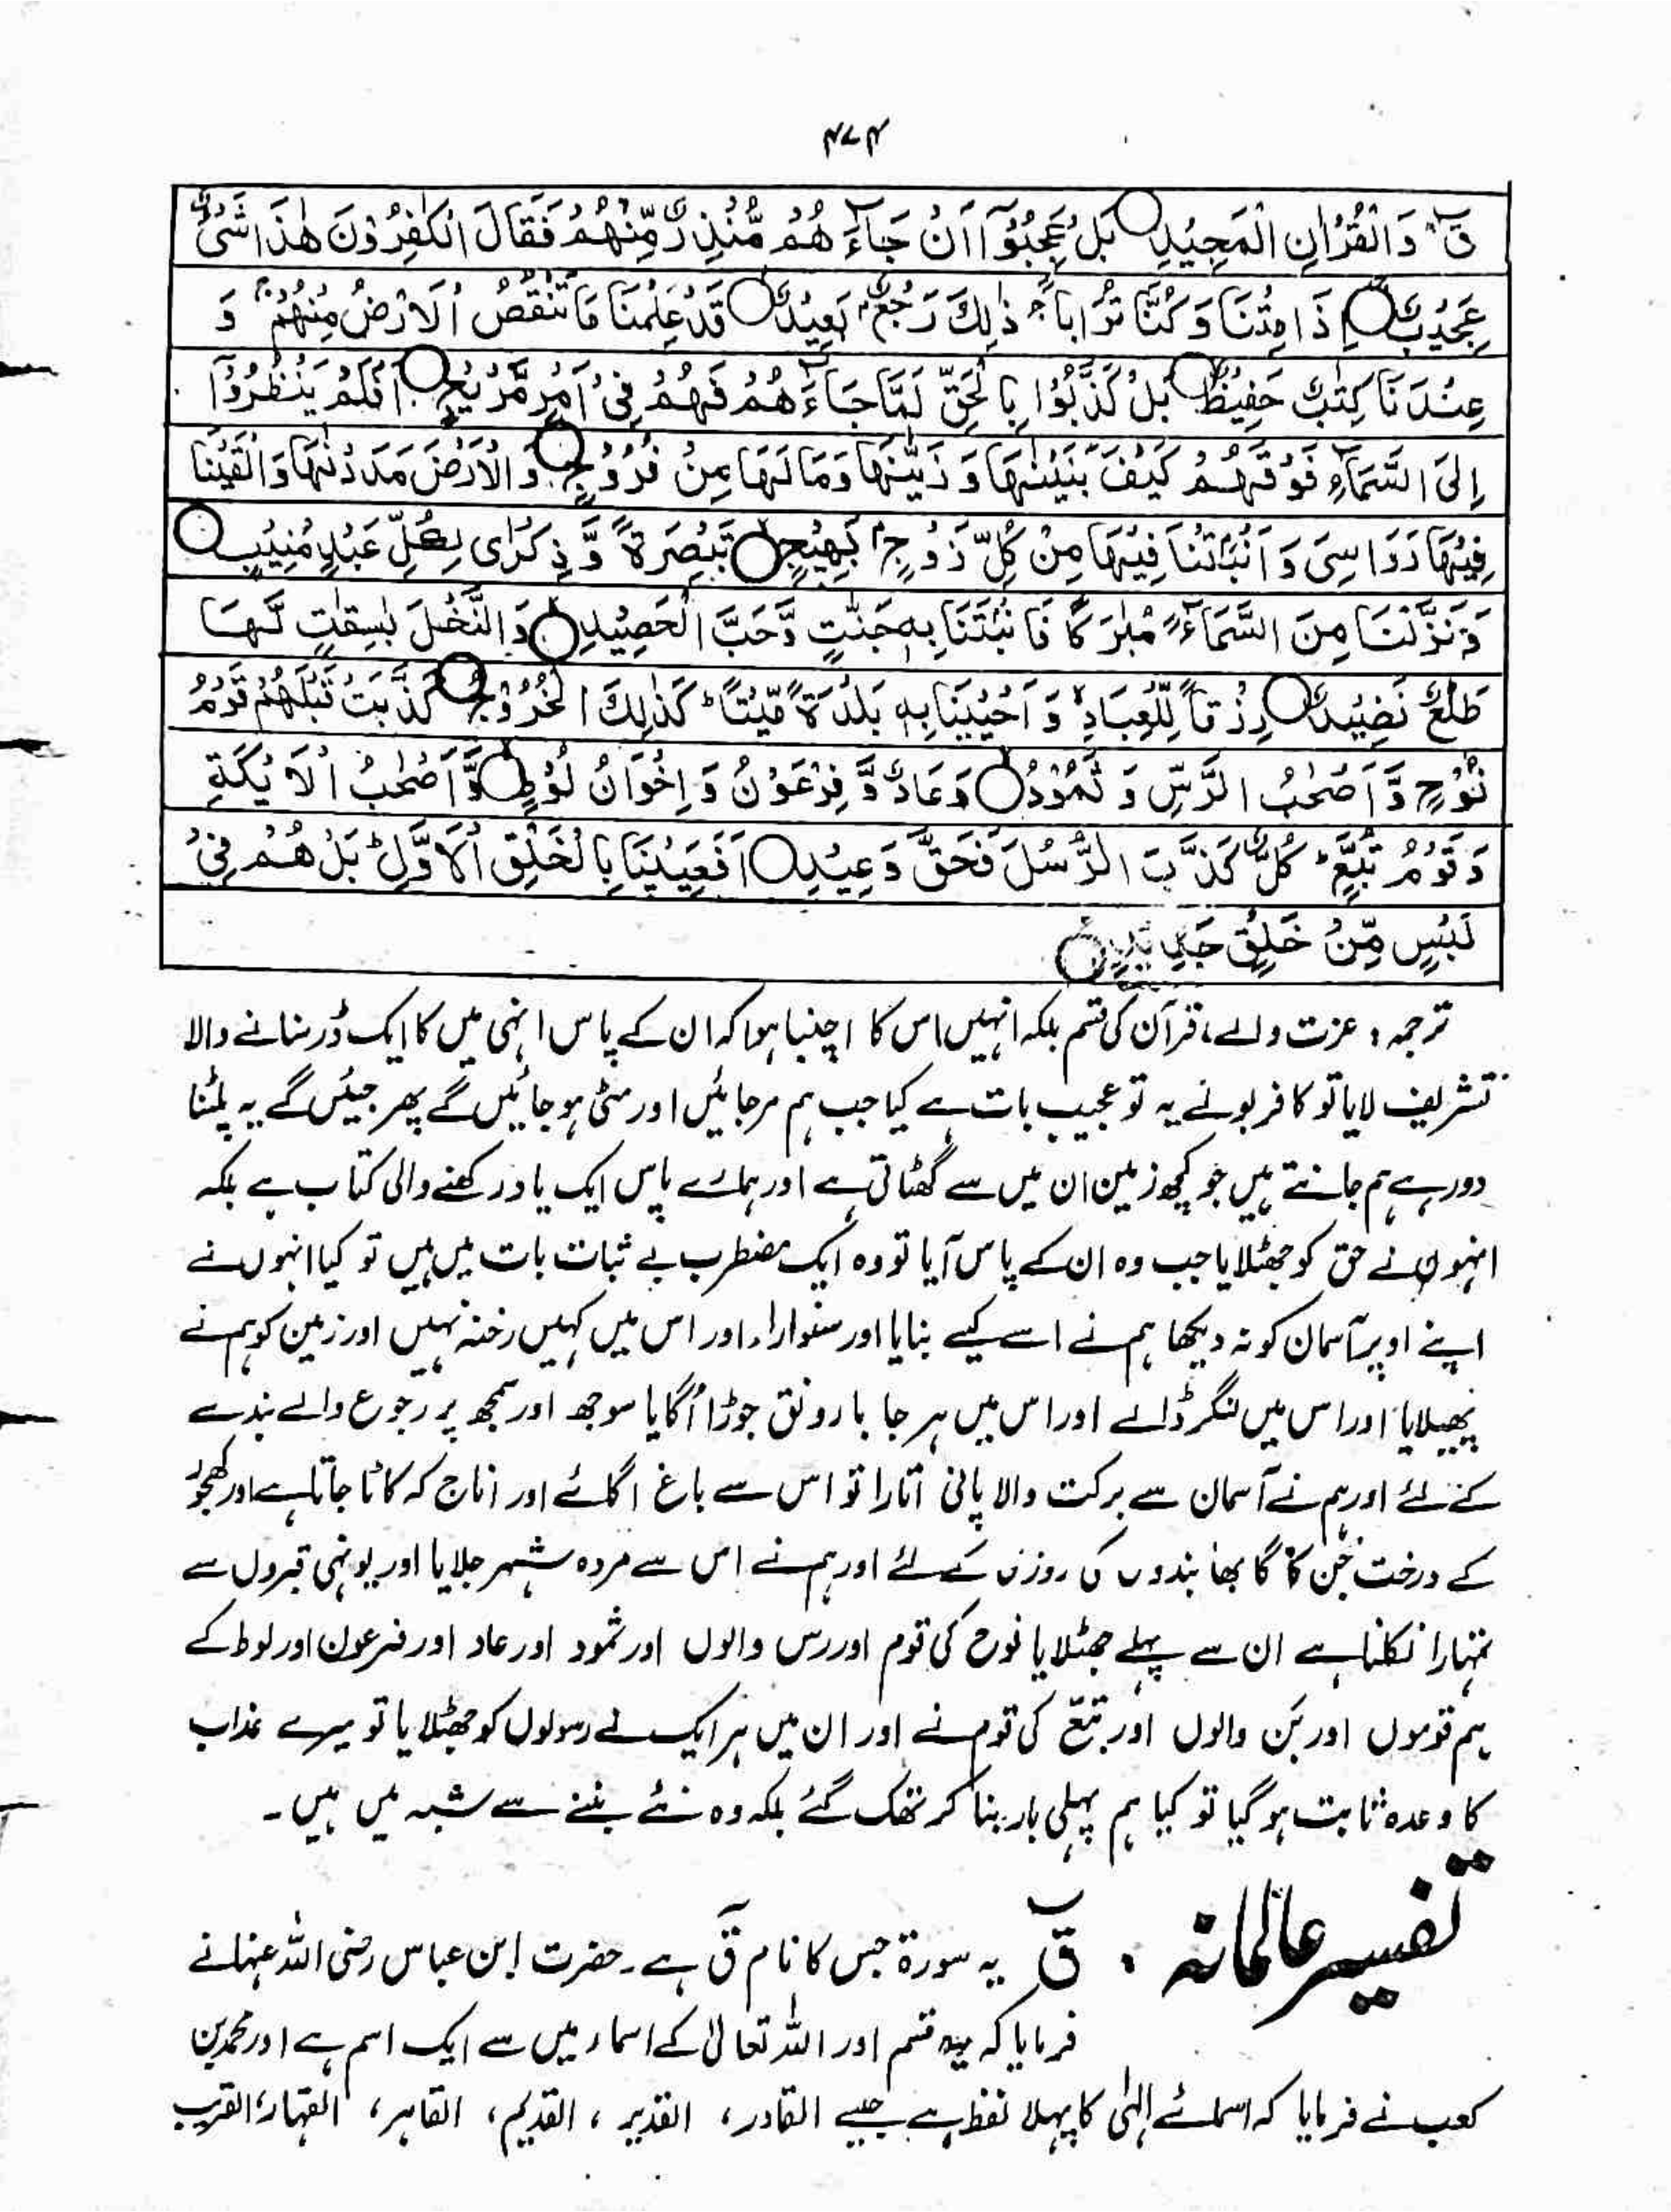 ۴۷۴
قٓ ۚ وَالْقُرْاٰنِ الْمَجِيْدِ بَلْ عَجِبُوْۤا اَنْ جَآءَ هُمْ مُّنْذِرٌ مِّنْهُمْ فَقَالَ الْكٰفِرُوْنَ هٰذَا شَىْءٌ
عَجِيْبٌ ءَاِذَا مِتْنَا وَكُنَّا تُرَاباً ۚ ذٰلِكَ رَجْعٌۢ بَعِيْدٌ قَدْ عَلِمْنَا مَا تَنْقُصُ الْاَرْضُ مِنْهُمْ ۚ وَ
عِنْدَنَا كِتٰبٌ حَفِيْظٌ بَلْ كَذَّبُوْا بِالْحَقِّ لَمَّا جَآءَ هُمْ فَهُمْ فِىْۤ اَمْرٍ مَّرِيْجٍ اَفَلَمْ يَنْظُرُوْۤا
اِلَى السَّمَآءِ فَوْقَهُمْ كَيْفَ بَنَيْنٰهَا وَزَيَّنّٰهَا وَمَا لَهَا مِنْ فُرُوْجٍ وَالْاَرْضَ مَدَدْنٰهَا وَاَلْقَيْنَا
فِيْهَا رَوَاسِىَ وَاَنْۢبَتْنَا فِيْهَا مِنْ كُلِّ زَوْجٍۭ بَهِيْجٍ تَبْصِرَةً وَّذِكْرٰى لِكُلِّ عَبْدٍ مُّنِيْبٍ
وَنَزَّلْنَا مِنَ السَّمَآءِ مَآءً مُّبٰرَكًا فَاَنْۢبَتْنَا بِهٖ جَنّٰتٍ وَّحَبَّ الْحَصِيْدِ وَالنَّخْلَ بٰسِقٰتٍ لَّهَا
طَلْعٌ نَّضِيْدٌ رِزْقاً لِّلْعِبَادِ ۙ وَاَحْيَيْنَا بِهٖ بَلْدَةً مَّيْتًا ؕ كَذٰلِكَ الْخُرُوْجُ كَذَّبَتْ قَبْلَهُمْ قَوْمُ
نُوْحٍ وَّاَصْحٰبُ الرَّسِّ وَثَمُوْدُ وَعَادٌ وَّفِرْعَوْنُ وَاِخْوَانُ لُوْطٍ وَّاَصْحٰبُ الْاَيْكَةِ
وَقَوْمُ تُبَّعٍ ؕ كُلٌّ كَذَّبَ الرُّسُلَ فَحَقَّ وَعِيْدِ اَفَعَيِيْنَا بِالْخَلْقِ الْاَوَّلِ ؕ بَلْ هُمْ فِىْ
لَبْسٍ مِّنْ خَلْقٍ جَدِيْدٍ
ترجمہ : عزت والے قرآن کی قسم بلکہ انہیں اس کا اچنبا ہوا کہ ان کے پاس انہی میں کا ایک ڈر سنانے والا
تشریف لایا تو کافر بولے یہ تو عجیب بات ہے کیا جب ہم مرجائیں اور مٹی ہو جائیں گے پھر جیئں گے یہ پلٹنا
دور ہے ہم جانتے ہیں جو کچھ زمین ان میں سے گھٹاتی ہے اور ہمارے پاس ایک یاد رکھنے والی کتاب ہے بلکہ
انہوں نے حق کو جھٹلایا جب وہ ان کے پاس آیا تو وہ ایک مضطرب بے ثبات بات میں ہیں تو کیا انہوں نے
اپنے اوپر آسمان کو نہ دیکھا ہم نے اسے کیسے بنایا اور سنوارا، اور اس میں کہیں رخنہ نہیں اور زمین کو ہم نے
پھیلایا اور اس میں لنگر ڈالے اور اس میں ہر جا بارونق جوڑا اُگایا سوجھ اور سمجھ پر رجوع والے بندے
کے لئے اور ہم نے آسمان سے برکت والا پانی اتارا تو اس سے باغ اگائے اور اناج کہ کاٹا جاتا ہے اور کھجور
کے درخت جن کا گا بھا بندوں کی روزی کے لئے اور ہم نے اس سے مردہ شہر جلایا اور یونہی قبروں سے
تمہارا نکلنا ہے ان سے پہلے جھٹلایا نوح کی قوم اور رس والوں اور ثمود اور عاد اور فرعون اور لوط کے
ہم قوموں اور بَن والوں اور تبّع کی قوم نے اور ان میں ہر ایک نے رسولوں کو جھٹلایا تو میرے عذاب
کا وعدہ ثابت ہو گیا تو کیا ہم پہلی بار بنا کر تھک گئے بلکہ وہ نئے بننے سے شبہ میں ہیں۔
تفسیر عالمانہ : قٓ یہ سورۃ جس کا نام قٓ ہے۔ حضرت ابن عباس رضی اللہ عنہما نے
فرمایا کہ یہ قسم اور اللہ تعالیٰ کے اسماء میں سے ایک اسم ہے اور محمد بن
کعب نے فرمایا کہ اسمائے الٰہی کا پہلا لفظ ہے جیسے القادر، القدیر ، القدیم، القاہر، القہار، القریب